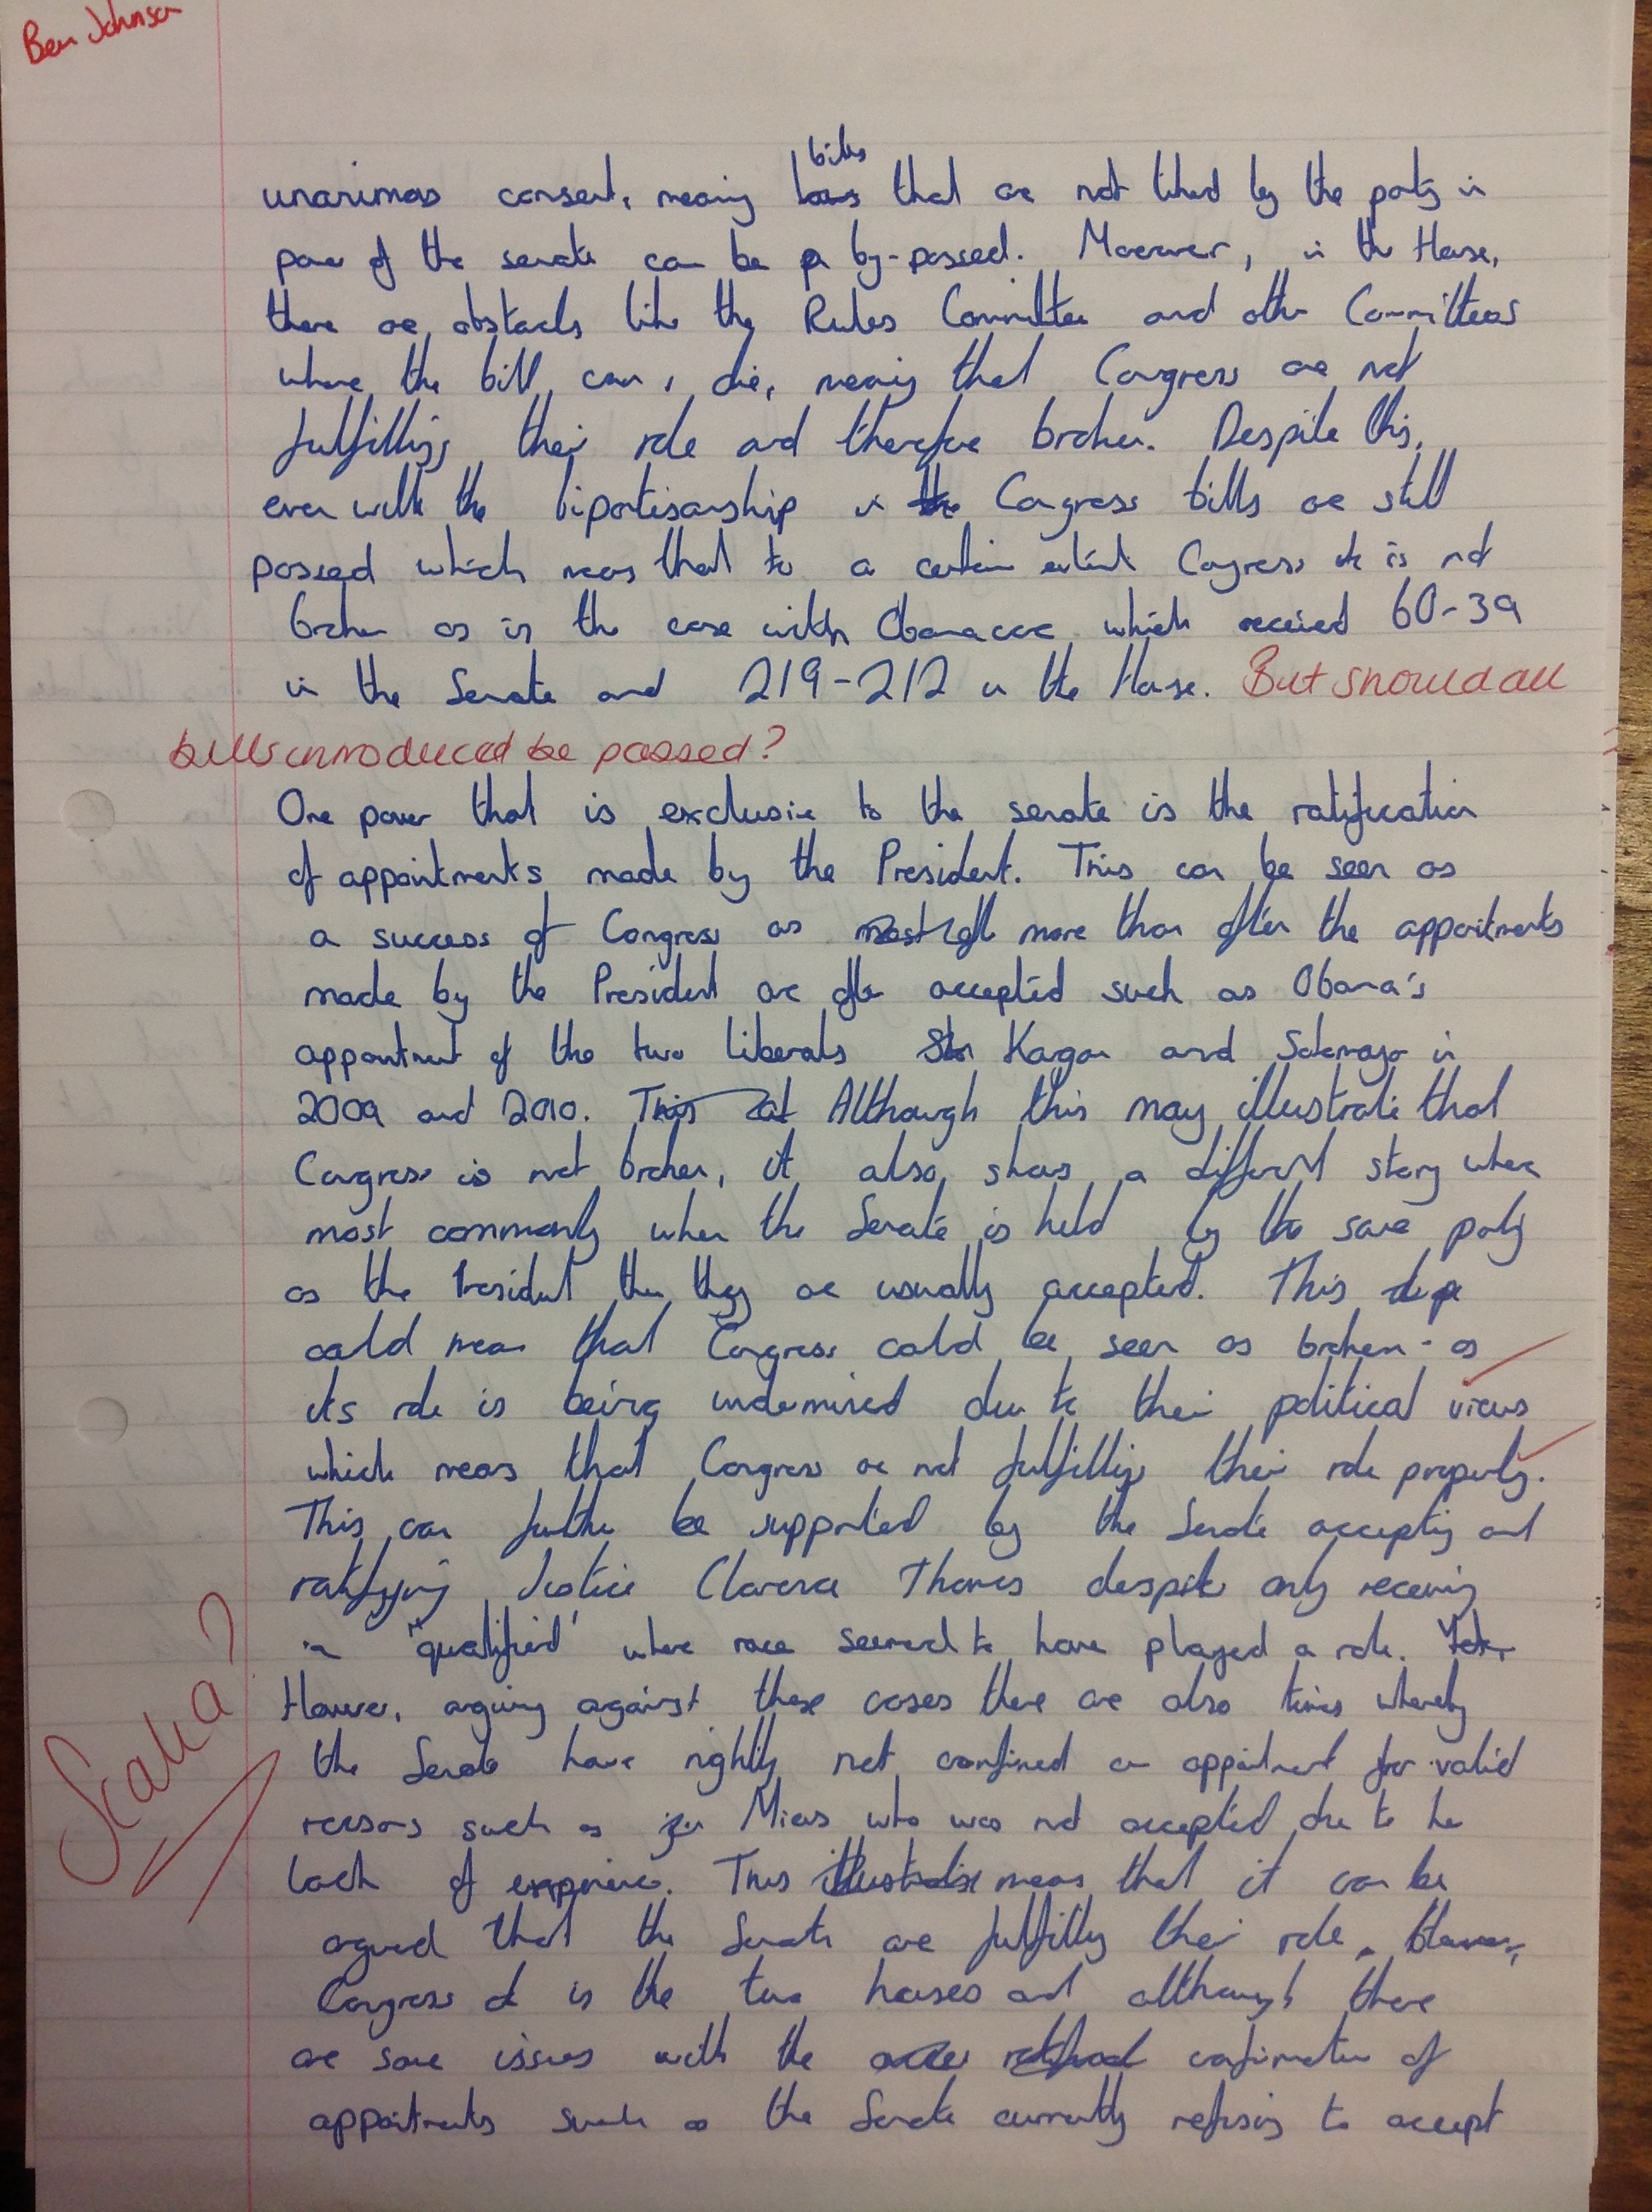 Ben Johnson
bills
unanimous consent, meaning laws that are not liked by the party in
power of the senate can be by-passed. Moreover, in the House,
there are obstacles like the Rules Committee and other Committees
where the bill can, die, meaning that Congress are not
fulfilling their role and therefore broken. Despite this,
even with the bipartisanship in the Congress bills are still
passed which means that to a certain extent Congress is not
broken as is the case with Obamacare which received 60-39
in the Senate and 219-212 in the House. But should all
bills introduced be passed?
One power that is exclusive to the senate is the ratification
of appointments made by the President. This can be seen as
a success of Congress as most more than often the appointments
made by the President are often accepted such as Obama's
appointment of the two liberals Kagan and Sotomayor in
2009 and 2010. This Although this may illustrate that
Congress is not broken, it also shows a different story when
most commonly when the Senate is held by the same party
as the President then they are usually accepted. This
could mean that Congress could be seen as broken - as
its role is being undermined due to their political views
which means that Congress are not fulfilling their role properly.
This can further be supported by the Senate accepting and
ratifying Justice Clarence Thomas despite only receiving
a "qualified" where race seemed to have played a role.
However, arguing against these cases there are also times whereby
the Senate have rightly not confirmed an appointment for valid
reasons such as Miers who was not accepted due to her
lack of experience. This illustrates means that it can be
Scalia?
argued that the Senate are fulfilling their role. However,
Congress is the two houses and although there
are some issues with the confirmation of
appointments such as the Senate currently refusing to accept